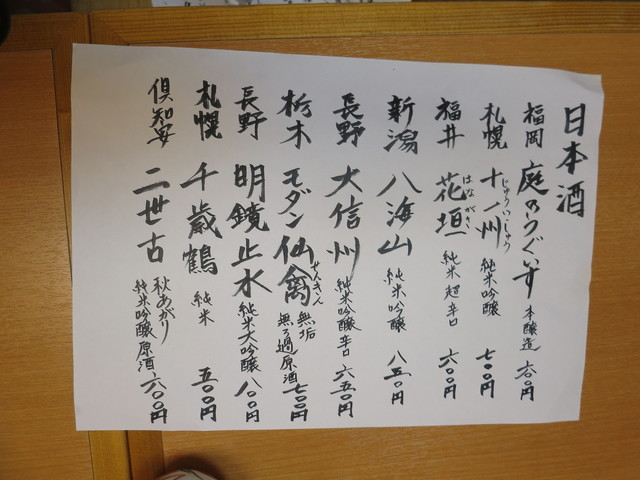 日本酒
福岡 庭のうぐいす 本醸造 六〇〇円
札幌 十一州 じゅういっしゅう 純米吟醸 七〇〇円
福井 花垣 はながき 純米 超辛口 六〇〇円
新潟 八海山 純米吟醸 八五〇円
長野 大信州 純米吟醸辛口 六五〇円
栃木 モダン仙禽 せんきん 無垢 無ろ過原酒 七〇〇円
長野 明鏡止水 純米大吟醸 八〇〇円
札幌 千歳鶴 純米 五〇〇円
倶知安 二世古 秋あがり 純米吟醸 原酒 六〇〇円